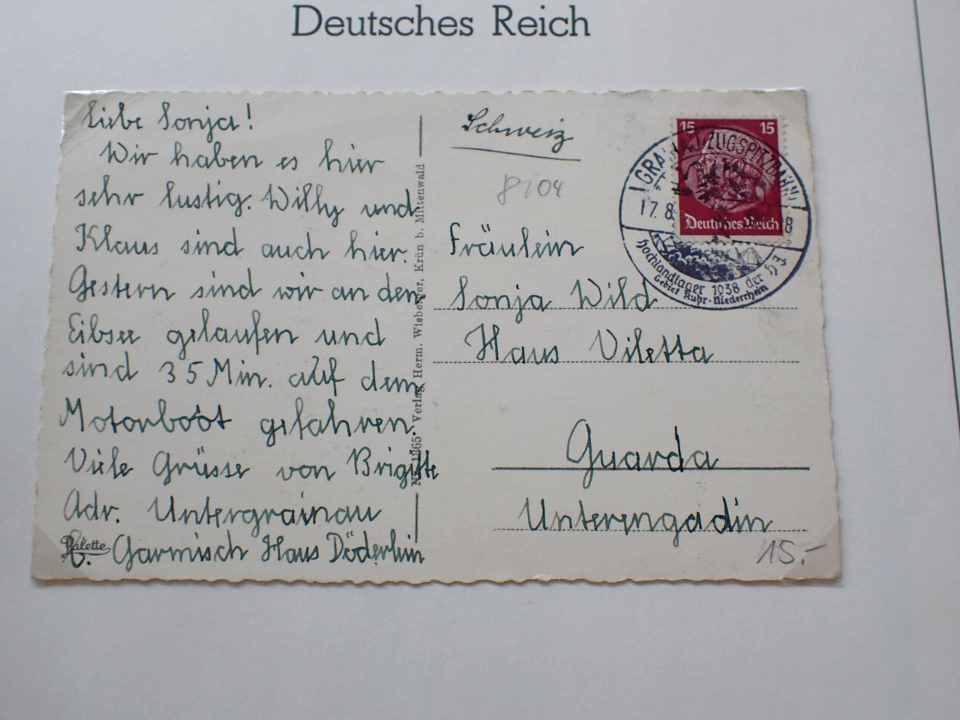 Deutsches Reich
Liebe Sonja!
Wir haben es hier
sehr lustig. Willy und
Klaus sind auch hier.
Gestern sind wir an den
Eibsee gelaufen und
sind 35 Min. auf dem
Motorboot gefahren.
Viele Grüsse von Brigitte
Adr. Untergrainau
b. Garmisch Haus Döderlein
Palette
Verlag Herm. Wieberger, Krün b. Mittenwald
Schweiz
8104
15 15
Deutsches Reich
ZUGSPITZBAHN
17.8.
8
Hochlandlager 1938 der HJ
Gebiet Ruhr-Niederrhein
Fräulein
Sonja Wild
Haus Viletta
Guarda
Unterengadin
15.-